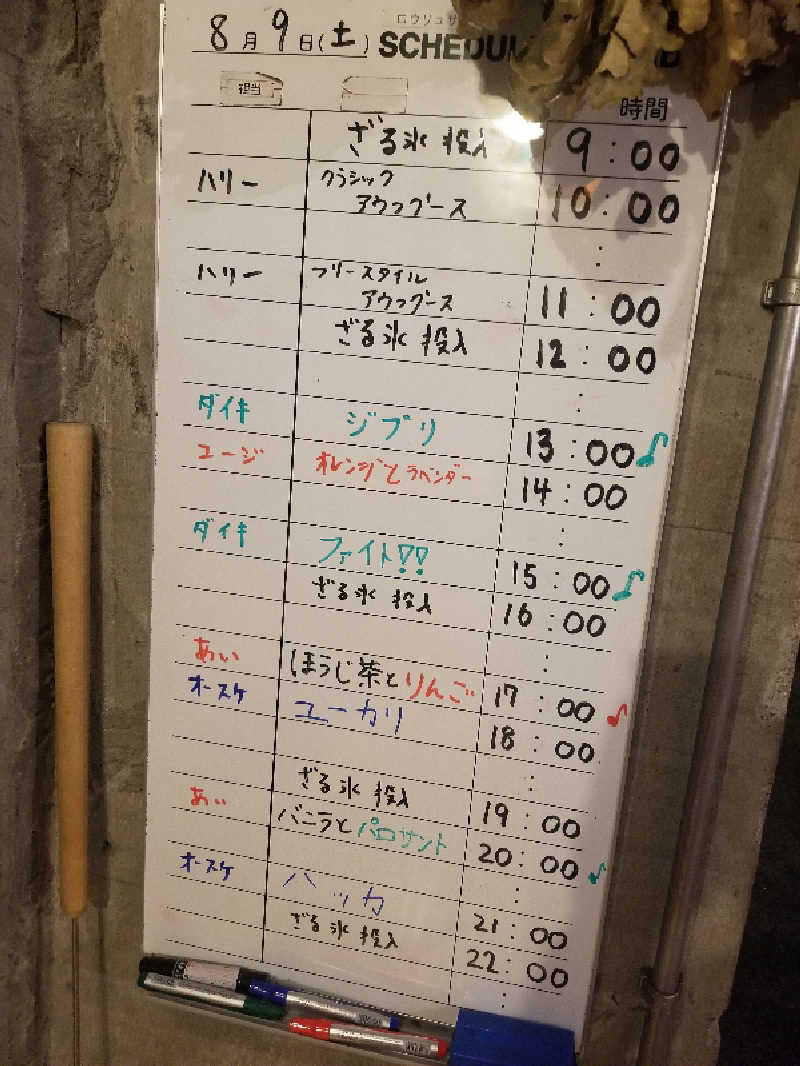 ロウリュサ
8月9日(土) SCHEDU
担当
時間
ざる氷 投入 9:00
ハリー クラシック
アウフグース 10:00
:
ハリー フリースタイル
アウフグース 11:00
ざる氷 投入 12:00
:
ダイキ ジブリ 13:00♪
ユージ オレンジとラベンダー 14:00
:
ダイキ ファイト!! 15:00♪
ざる氷 投入 16:00
:
あい ほうじ茶とりんご 17:00♪
オースケ ユーカリ 18:00
:
ざる氷 投入 19:00
あい バニラとパロサント 20:00♪
:
オースケ ハッカ 21:00
ざる氷 投入 22:00
: